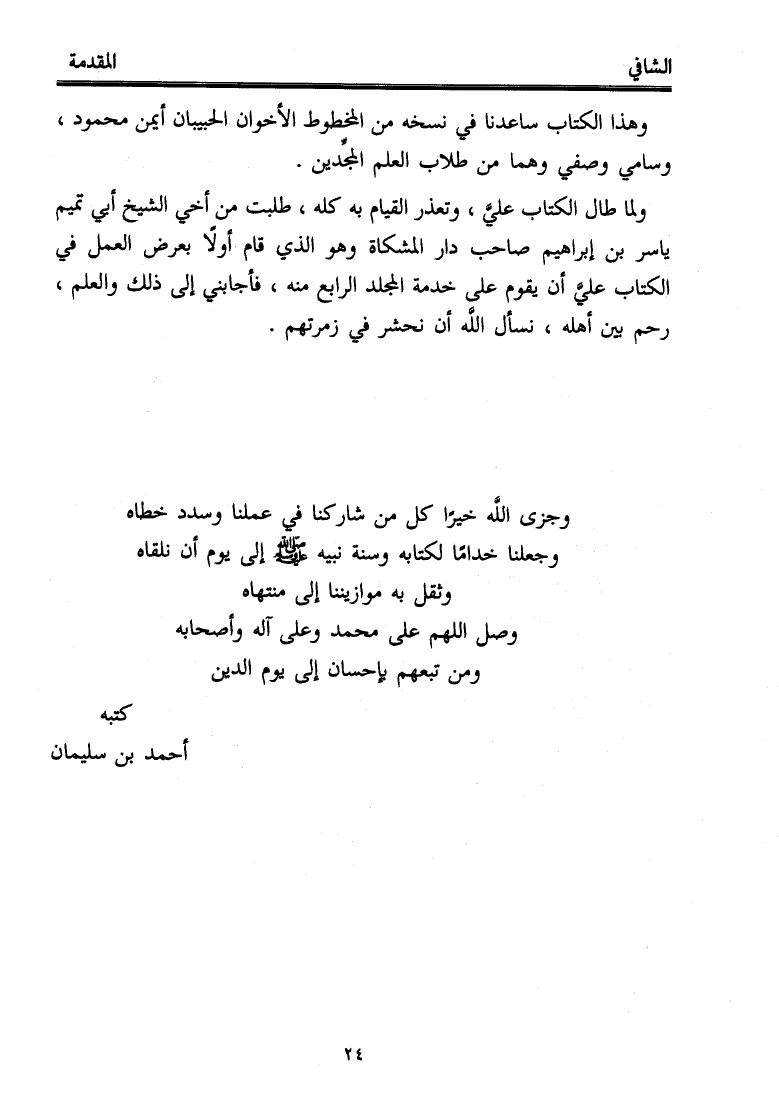 الشافي المقدمة
وهذا الكتاب ساعدنا في نسخه من المخطوط الأخوان الحبيبان أيمن محمود ،
وسامي وصفي وهما من طلاب العلم المجُدِّين .
ولما طال الكتاب عليَّ ، وتعذر القيام به كله ، طلبت من أخي الشيخ أبي تميم
ياسر بن إبراهيم صاحب دار المشكاة وهو الذي قام أولًا بعرض العمل في
الكتاب عليَّ أن يقوم على خدمة المجلد الرابع منه ، فأجابني إلى ذلك والعلم ،
رحم بين أهله ، نسأل اللَّه أن نحشر في زمرتهم .
وجزى اللَّه خيرًا كل من شاركنا في عملنا وسدد خطاه
وجعلنا خدامًا لكتابه وسنة نبيه ﷺ إلى يوم أن نلقاه
وثقل به موازيننا إلى منتهاه
وصل اللهم على محمد وعلى آله وأصحابه
ومن تبعهم بإحسان إلى يوم الدين
كتبه
أحمد بن سليمان
٢٤